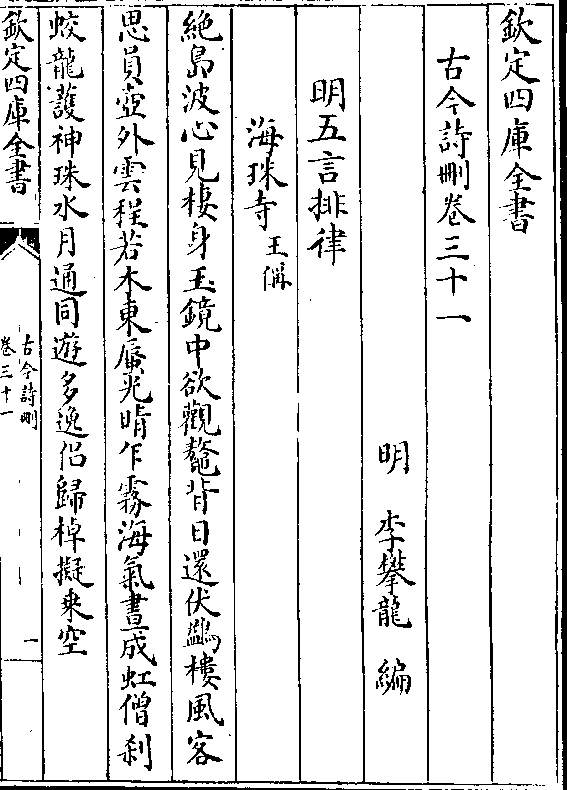 欽定四庫全書
古今詩刪卷三十一
明　李攀龍　編
明五言排律
海珠寺王偁
絶島波心見棲身玉鏡中欲觀鼇背日還伏鷁樓風客
思員壺外雲程若木東蜃光晴乍霧海氣晝成虹僧刹
蛟龍護神珠水月通同遊多逸侣歸棹擬乘空
欽定四庫全書
古今詩刪
卷三十一
一